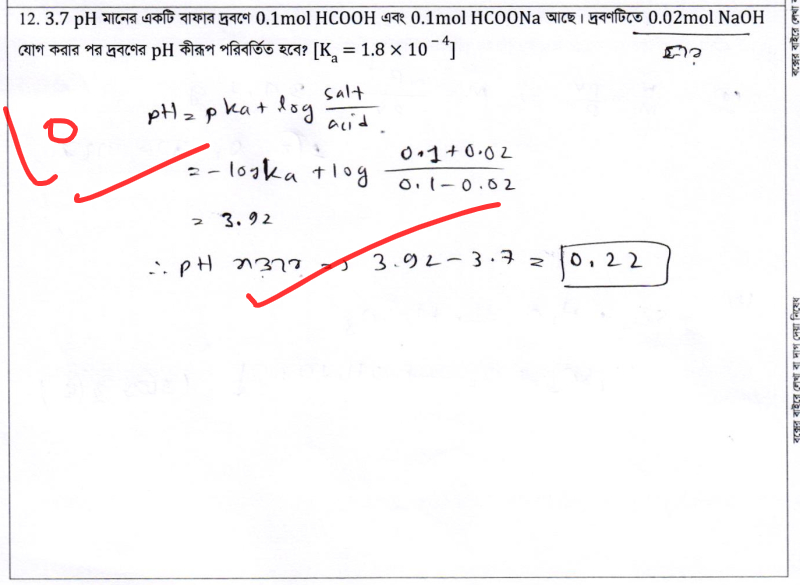 12. 3.7 pH মানের একটি বাফার দ্রবণে 0.1mol HCOOH এবং 0.1mol HCOONa আছে। দ্রবণটিতে 0.02mol NaOH
যোগ করার পর দ্রবণের pH কীরূপ পরিবর্তিত হবে? [Kₐ = 1.8 × 10⁻⁴]
pH = pka + log salt/acid
= -logka + log 0.1+0.02/0.1-0.02
= 3.92
∴ pH → 3.92-3.7 = 0.22
10